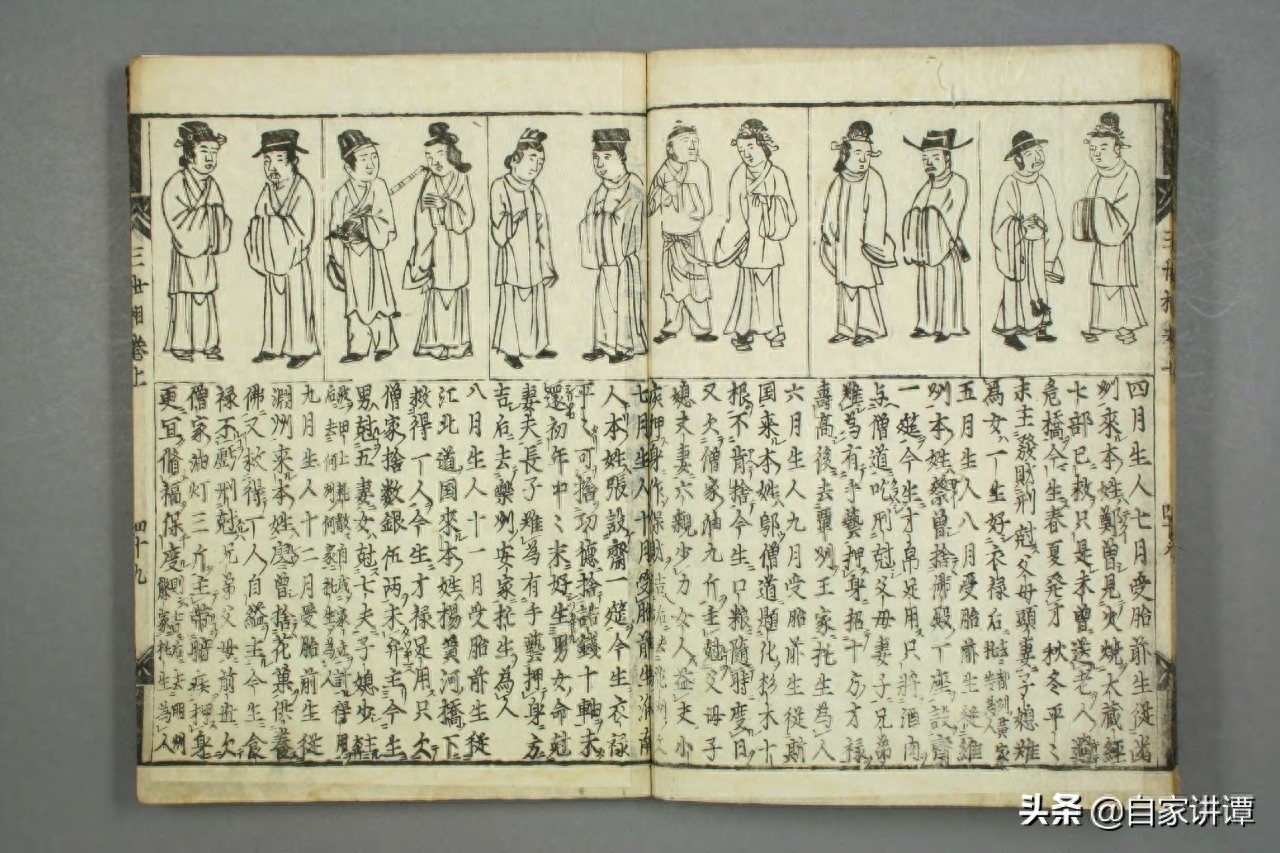 四月生人七月受胎前生從幽
州來本姓鄭曾見火燒大藏經
七部已救只是未曾送老人過
危橋今生春夏發才秋冬平〻
末主發財刑尅父母頭妻子媳難
為女一生好衣祿后
五月生人八月受胎前生從維
州本姓蔡曾捨佛殿一座設齋
一筵今生才帛足用只將酒肉
与僧道吃刑尅父母妻子兄弟
難為有手藝押身招十方才祿
壽高後去覇州王家托生為人
六月生人九月受胎前生從斯
国來本姓鄔僧道題化杉木十
根不肯捨今生口粮隨時度日
又欠僧家油九斤主尅父母子
媳夫妻六親少力女人益丈小
七月生人十月受胎前生
人本姓張設齋一筵今生衣祿
平〻可捨功德捨諸錢十軸未
還初年中〻末好生男女命尅
妻夫長子難為有手藝押身方
吉后去樂州安家托生為人
八月生人十一月受胎前生從
江北道国來本姓楊賛河橋下
救得一人今生才祿足用只欠
僧家捨数銀伍兩未還主今生
男尅五妻女尅七夫子媳少
九月生人十二月受胎前生從
淵州來本姓廖曾捨花菓供養
佛又救得一人自縊主今生食
祿不虧刑尅兄弟父母前世欠
僧家油灯三斤主帶暗疾押身
更宜脩福保度
三世相卷上
四十九
头条 @自家讲谭